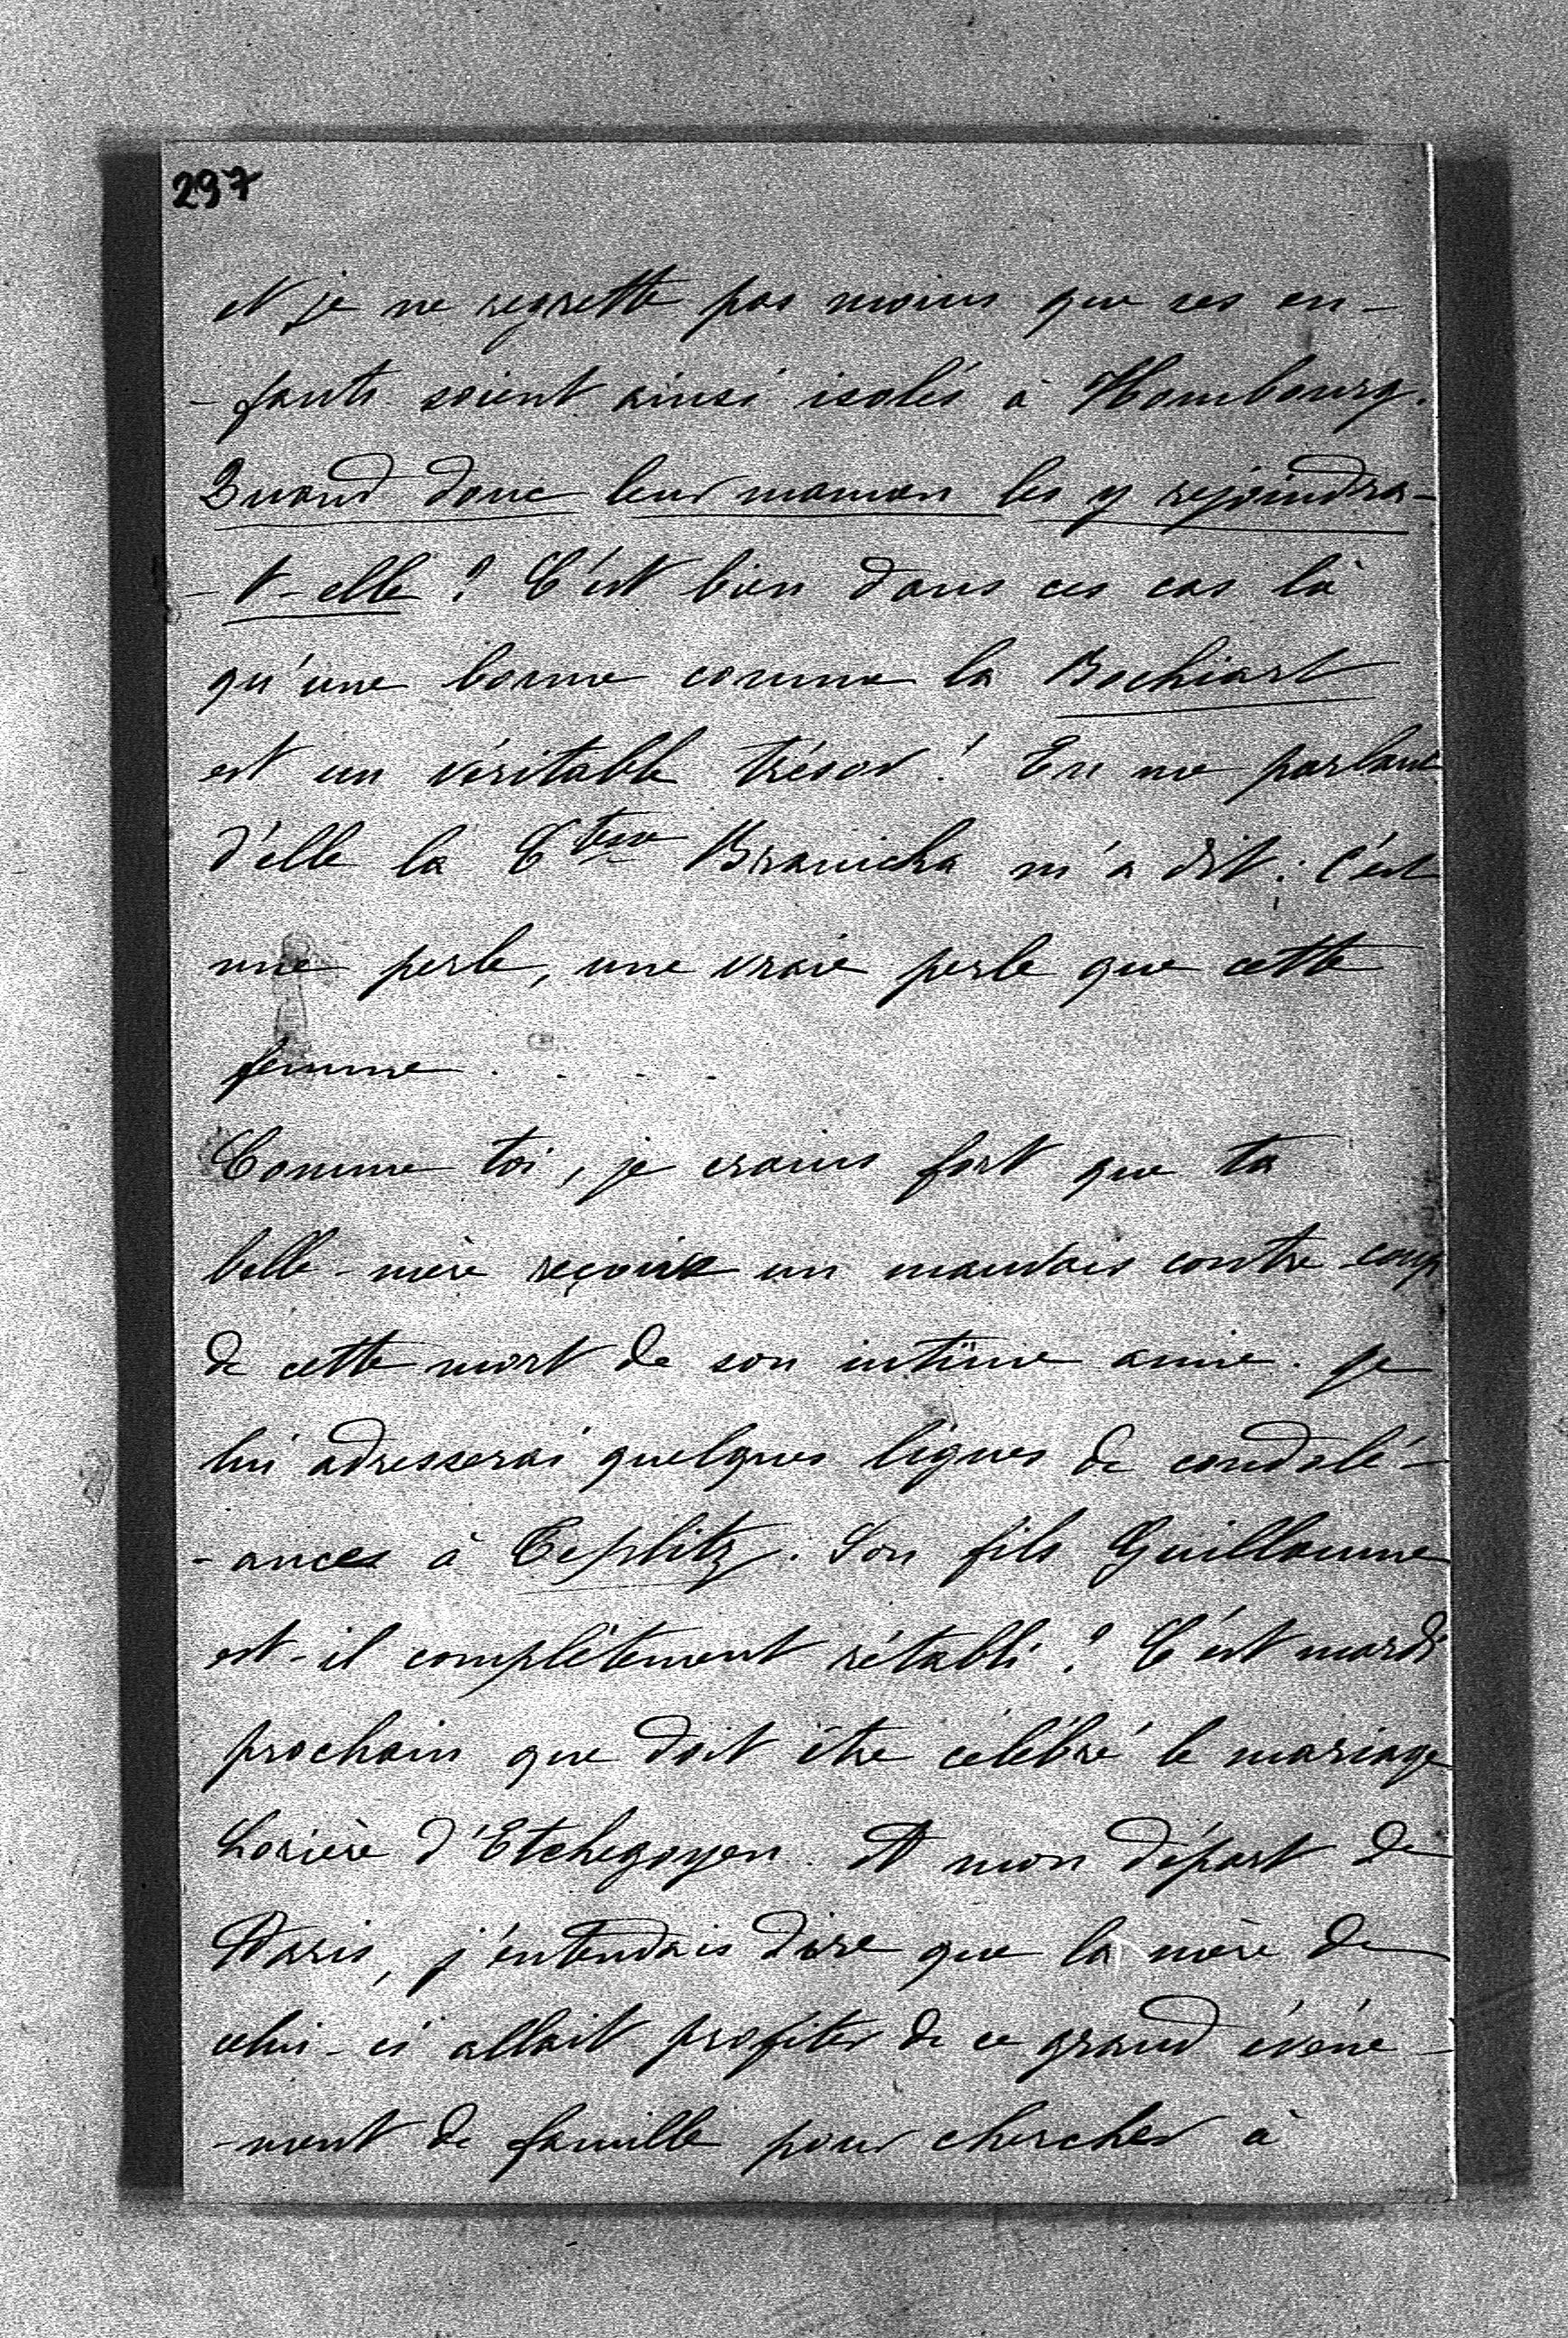 297
et je ne regrette pas moins que ces en-
-fants soient ainsi isolés à Hombourg.
Quand donc leur maman les y rejoindra-
-t-elle ? C'est bien dans ces cas là
qu'une bonne comme la Bochiart
est un véritable trésor ! En me parlant
d'elle la Ctesse Branicka m'a dit : c'est
une perle, une vraie perle que cette
femme . . . .
Comme toi, je crains fort que ta
belle-mère reçoive un mauvais contre-coup
de cette mort de son intime amie. Je
lui adresserai quelques lignes de condolé-
-ances à Teplitz. Son fils Guillaume
est-il complètement rétabli ? C'est mardi
prochain que doit être célébré le mariage
Lorière d'Etchegoyen. A mon départ de
Paris, j'entendais dire que la mère de
celui-ci allait profiter de ce grand événe-
-ment de famille pour chercher à